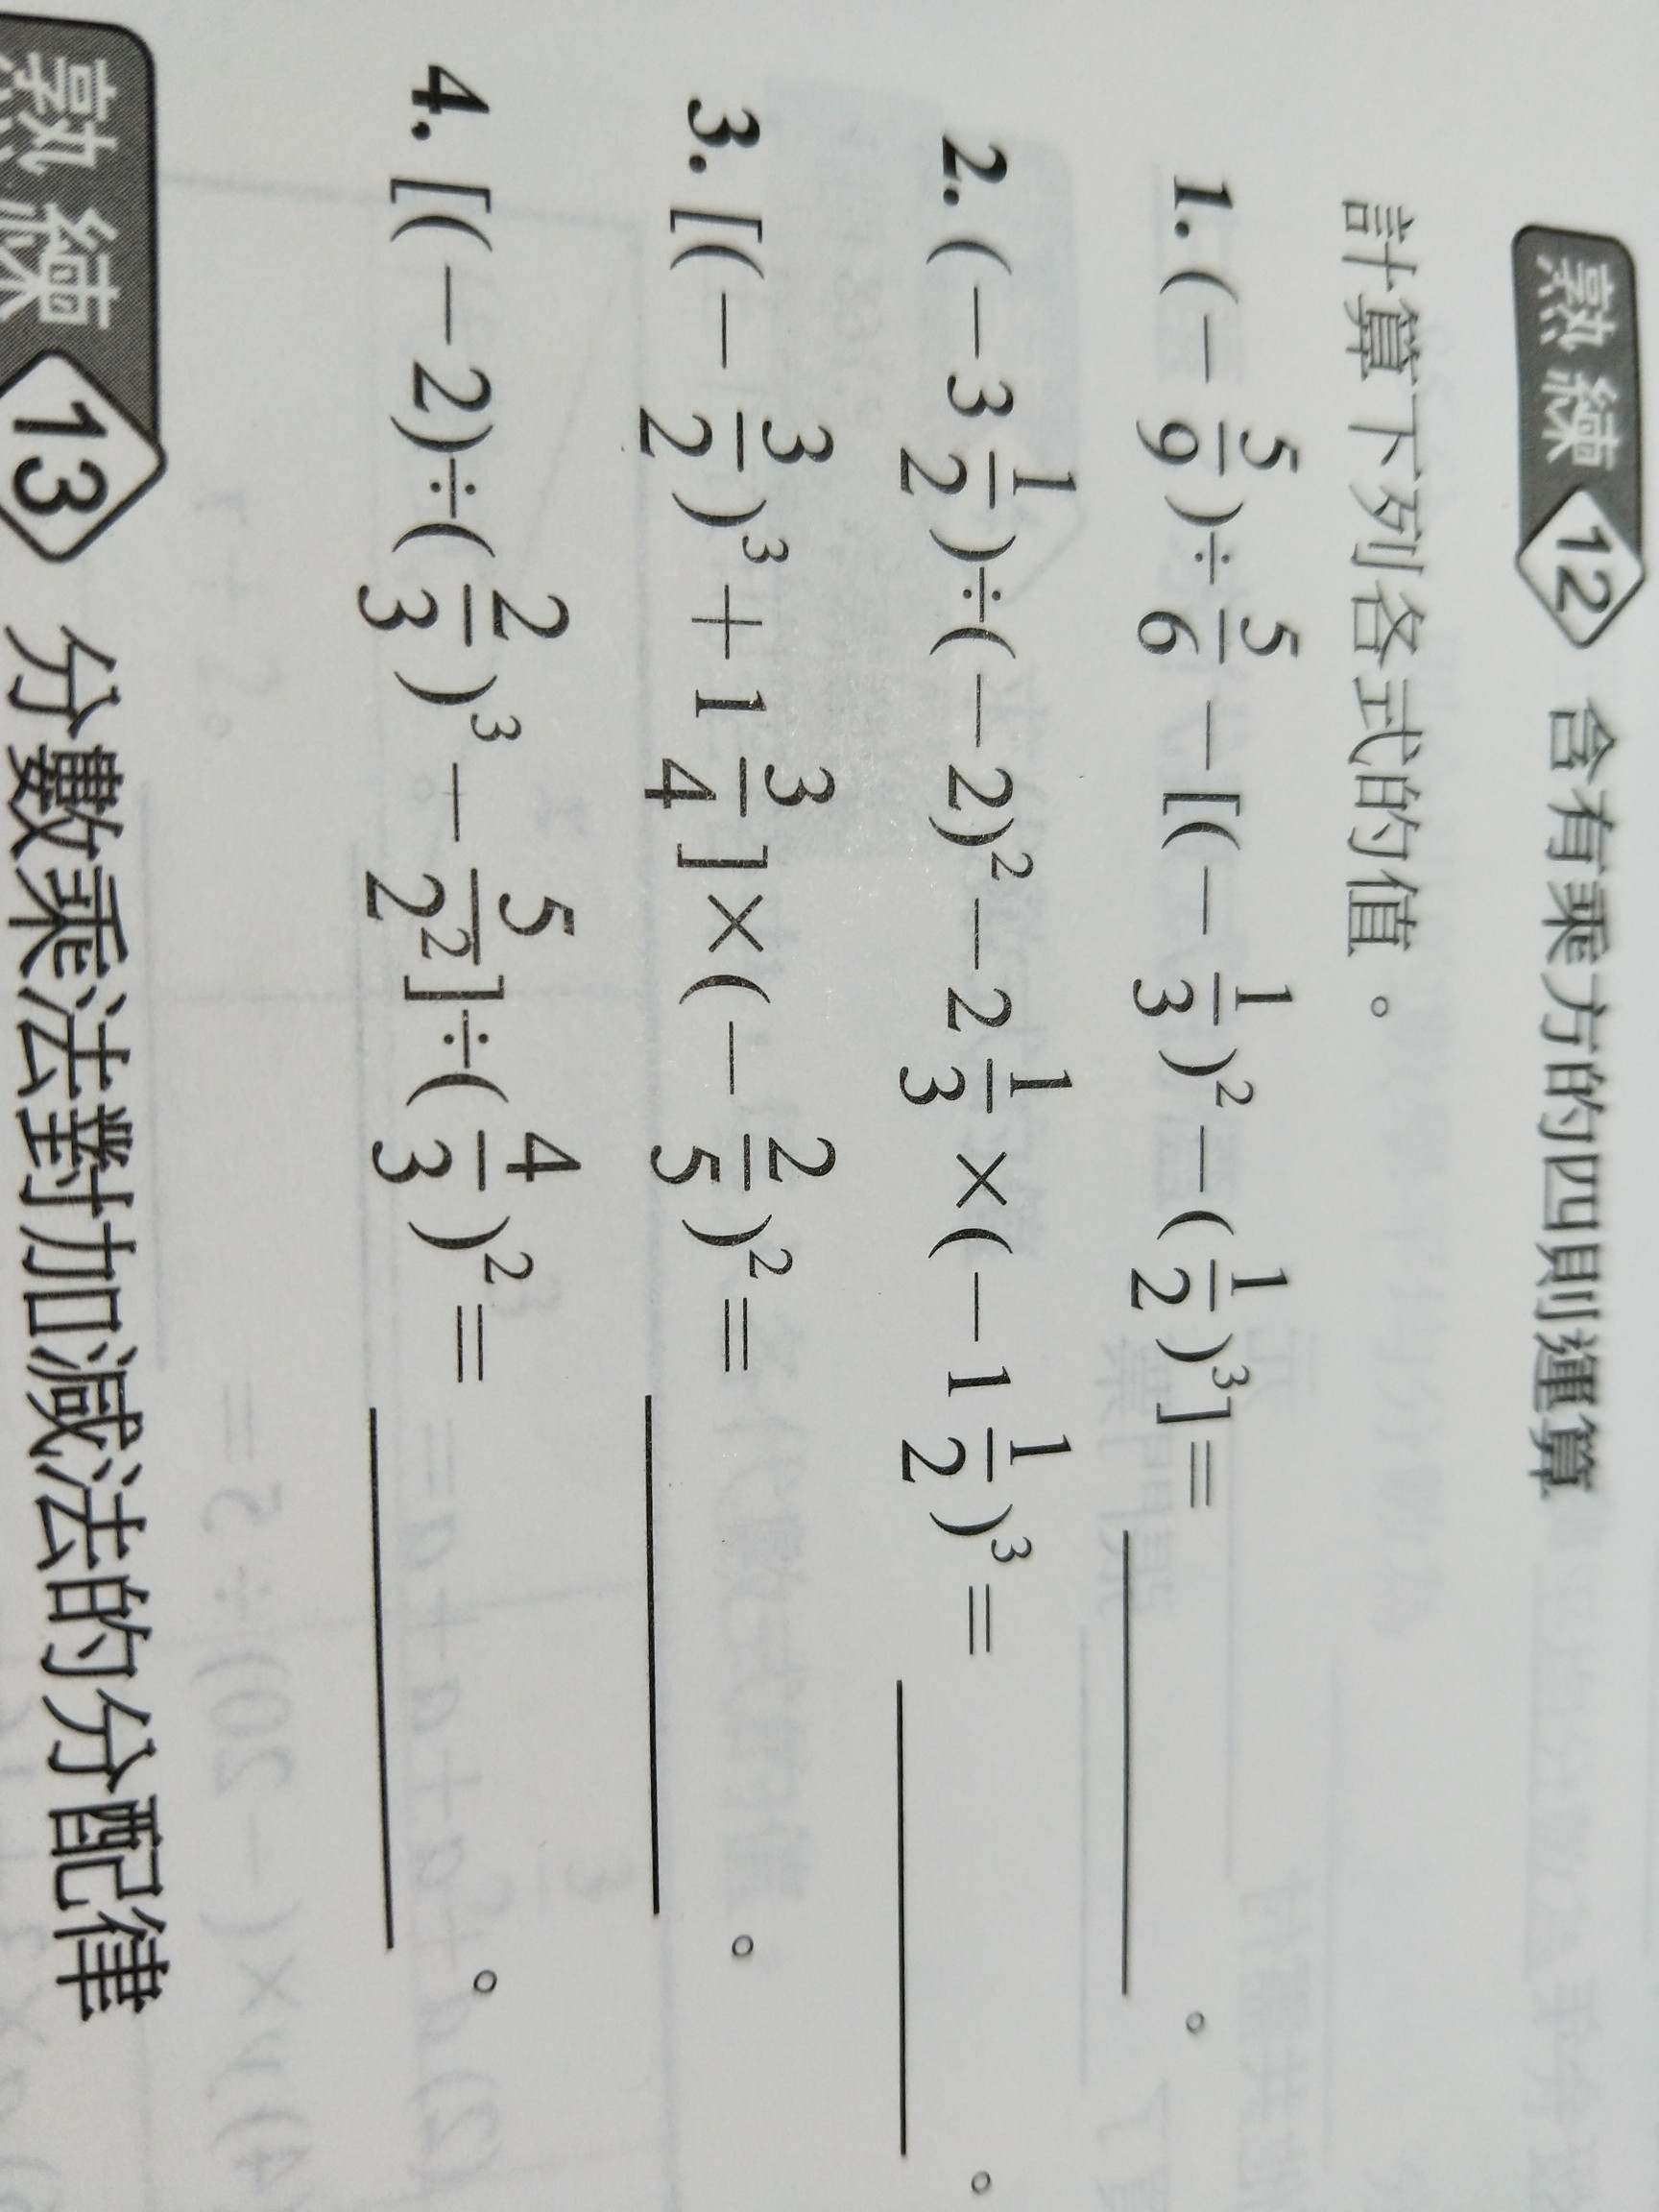 熟練 12 含有乘方的四則運算
計算下列各式的值。
1. (－5/9)÷5/6－[(－1/3)²－(1/2)³]＝________。
2. (－3 1/2)÷(－2)²－2 1/3×(－1 1/2)³＝________。
3. [(－3/2)³＋1 3/4]×(－2/5)²＝________。
4. [(－2)÷(2/3)³－5/2²]÷(4/3)²＝________。
熟練 13 分數乘法對加減法的分配律